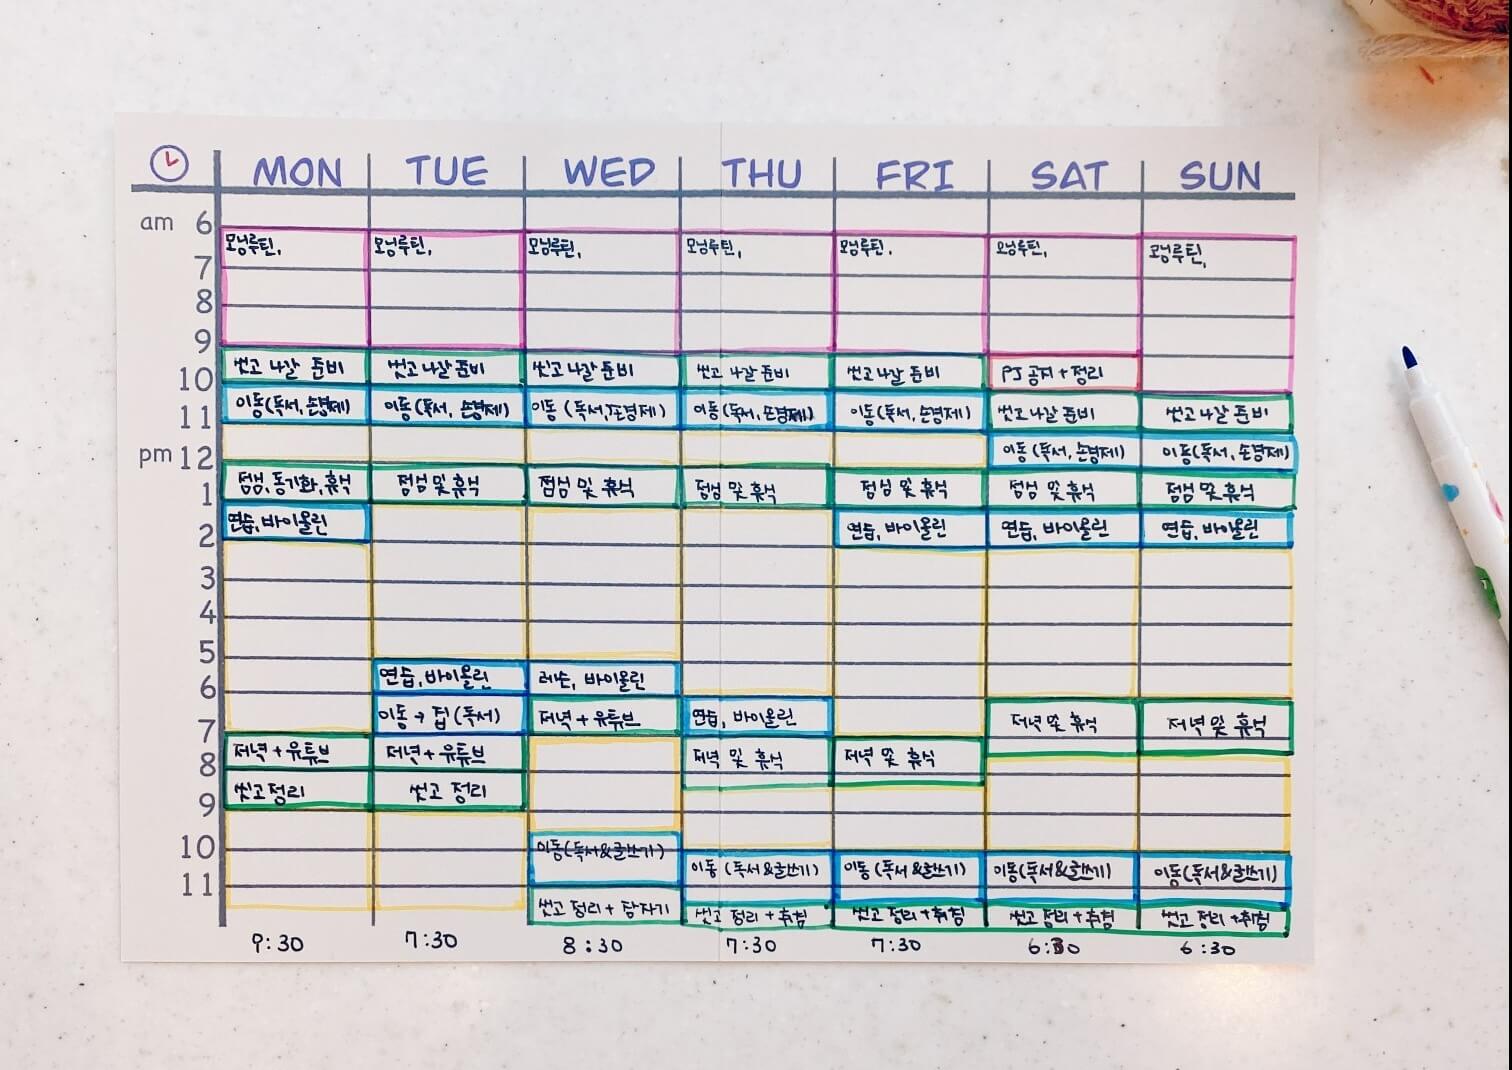 MON TUE WED THU FRI SAT SUN
am 6
모닝루틴, 모닝루틴, 모닝루틴, 모닝루틴, 모닝루틴, 모닝루틴, 모닝루틴,
7
8
9
씻고 나갈 준비 씻고 나갈 준비 씻고 나갈 준비 씻고 나갈 준비 씻고 나갈 준비 PJ 공지 + 정리
10
이동(독서, 손경제) 이동(독서, 손경제) 이동(독서, 손경제) 이동(독서, 손경제) 이동(독서, 손경제) 씻고 나갈 준비 씻고 나갈 준비
11
이동(독서, 손경제) 이동(독서, 손경제)
pm 12
점심, 동기화, 휴식 점심 및 휴식 점심 및 휴식 점심 및 휴식 점심 및 휴식 점심 및 휴식 점심 및 휴식
1
연습, 바이올린 연습, 바이올린 연습, 바이올린 연습, 바이올린
2
3
4
5
연습, 바이올린 레슨, 바이올린
6
이동 → 집 (독서) 저녁 + 유튜브 연습, 바이올린 저녁 및 휴식 저녁 및 휴식
7
저녁 + 유튜브 저녁 + 유튜브 저녁 및 휴식 저녁 및 휴식
8
씻고 정리 씻고 정리
9
10
이동(독서&글쓰기) 이동(독서&글쓰기) 이동(독서&글쓰기) 이동(독서&글쓰기) 이동(독서&글쓰기)
11
씻고 정리 + 잠자기 씻고 정리 + 취침 씻고 정리 + 취침 씻고 정리 + 취침 씻고 정리 + 취침
9:30 7:30 8:30 7:30 7:30 6:30 6:30